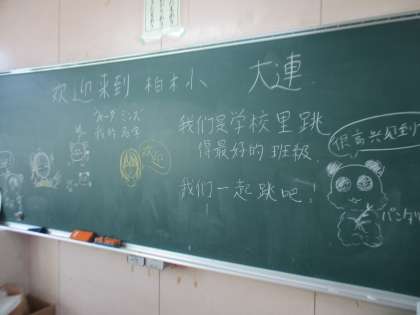 欢迎来到 柏木小 大連
我的名字
我们是学校里跳
得最好的班级.
我们一起跳吧！
很高兴见到
パンダ